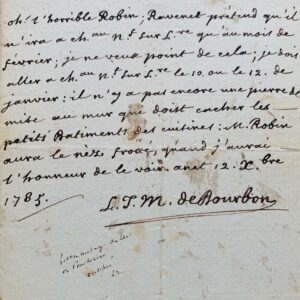 oh! l'horrible Robin; Ravenet prétend qu'il
n'ira a ch.au n.f sur L.re qu'au mois de
fevrier; je ne veux point de cela; je dois
aller a ch.au n.f sur L.re le 10. ou le 12. de
janvier: il n'y a pas encore une pierre de
mise au mur que doist cacher les
petits Batiments des cuisines: M. Robin
aura le nèze froté, quand j'aurai
l'honneur de le voir. anet 12. X.bre
1785.
L. J. M. de Bourbon